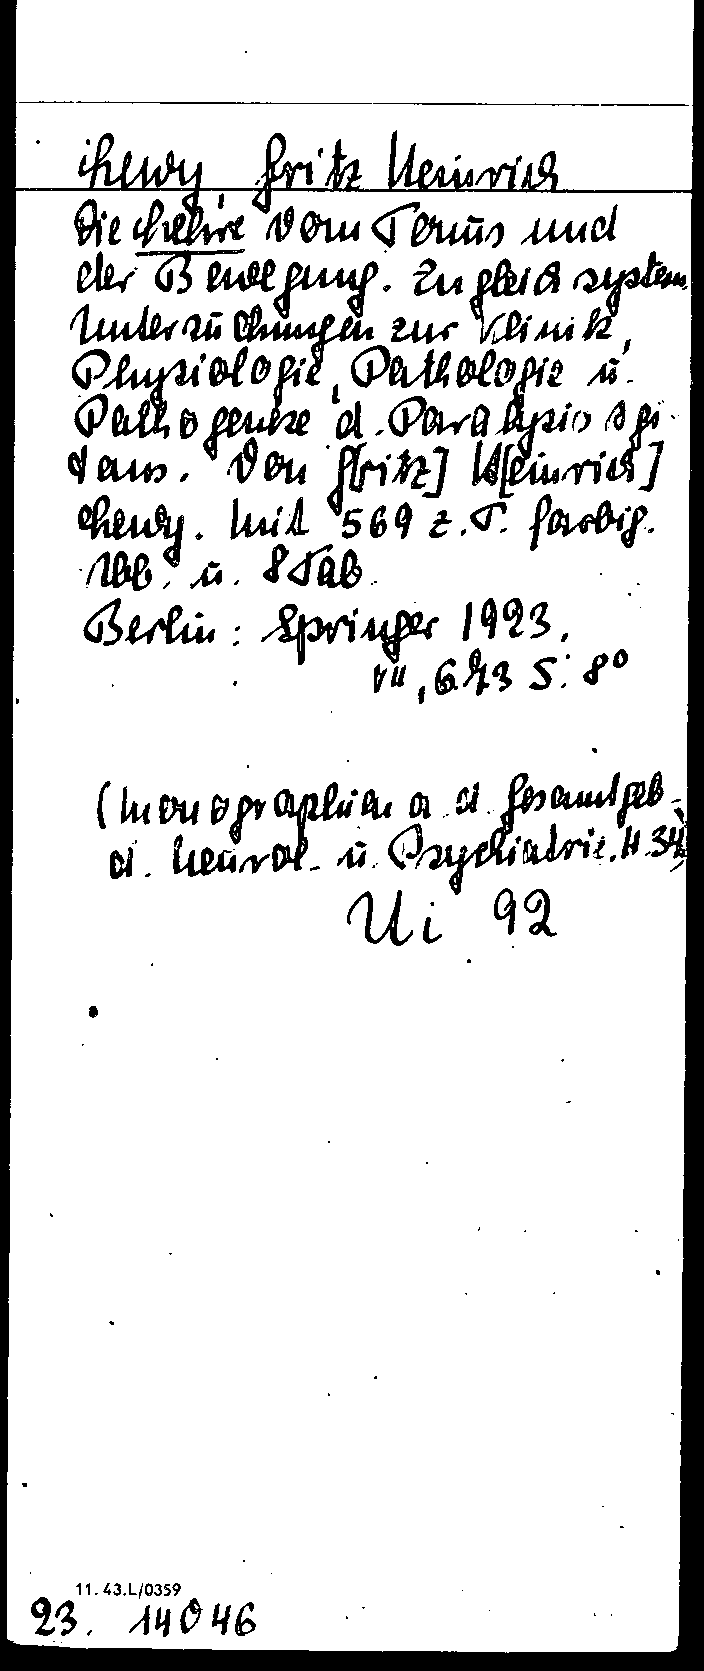 Lewy, Fritz Heinrich
Die Lehre vom Tonus und
der Bewegung. Zugleich system.
Untersuchungen zur Klinik,
Physiologie, Pathologie u.
Pathogenese d. Paralysis agi-
tans. Von F[ritz] H[einrich]
Lewy. Mit 569 z. T. farbig.
Abb. u. 8 Tab.
Berlin: Springer 1923.
VII, 673 S. 8°
(Monographien a. d. Gesamtgeb.
d. Neurol. u. Psychiatrie. H. 34)
Ui 92
11. 43.L/0359
23. 14046